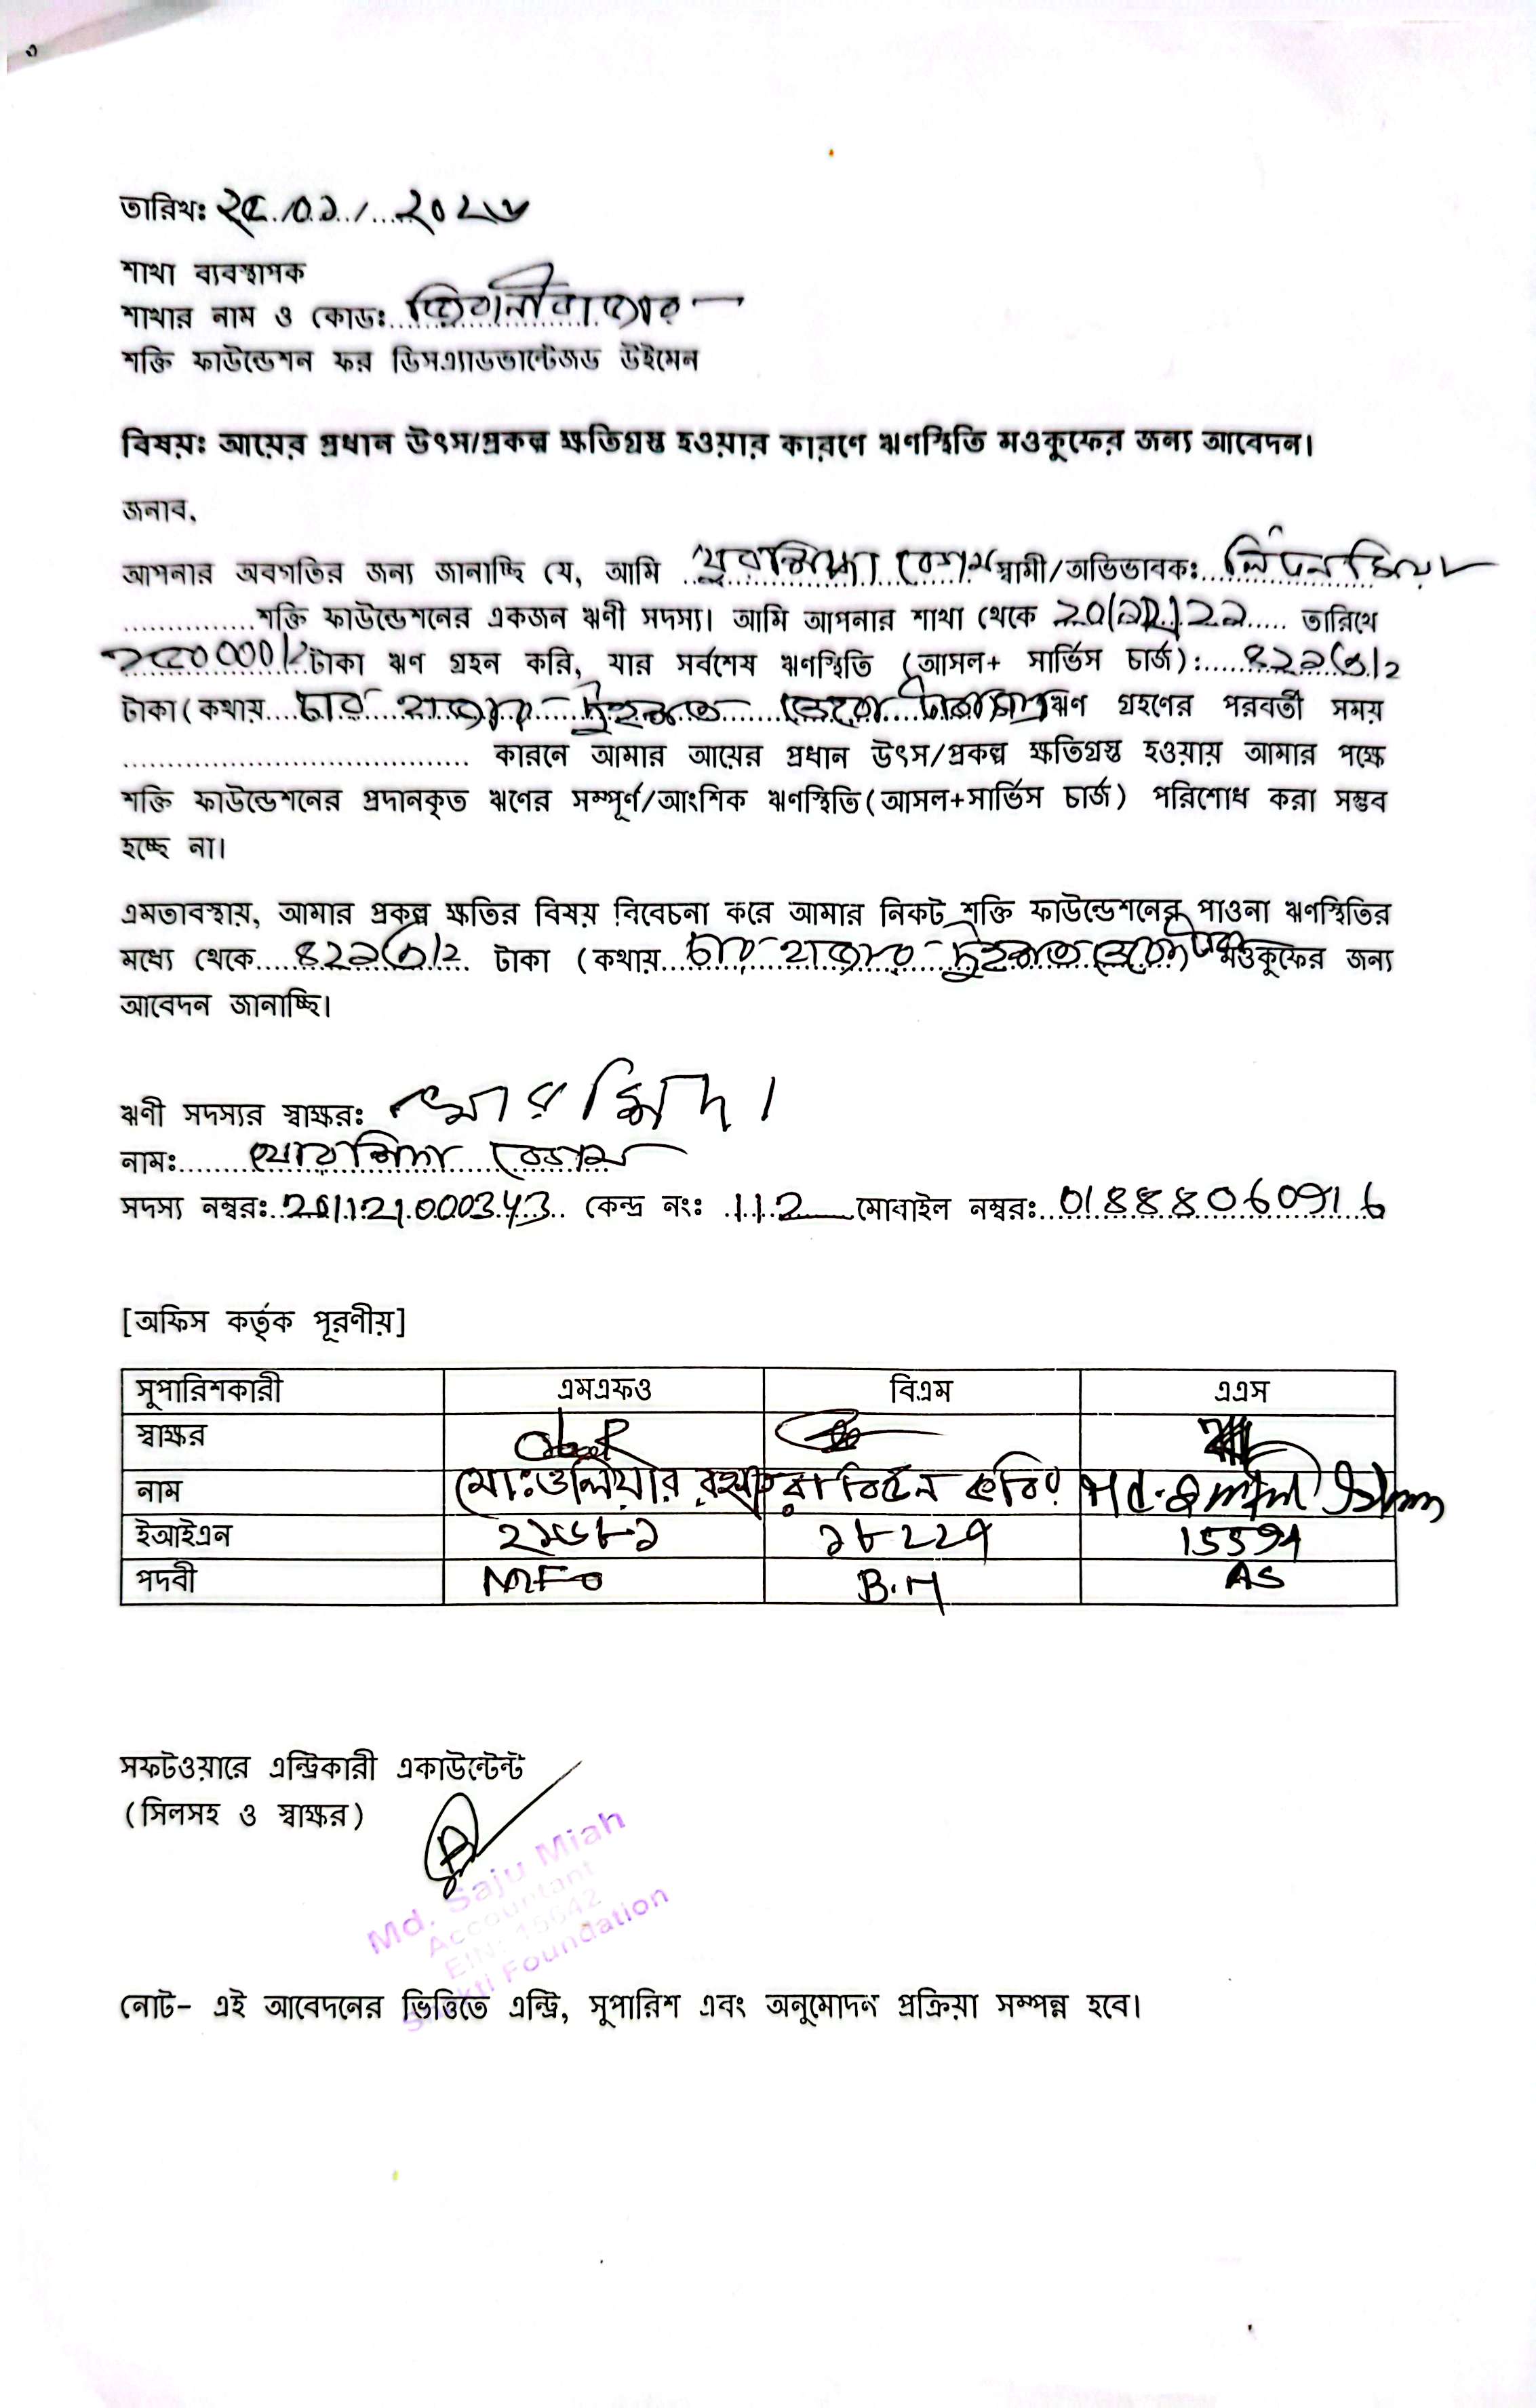 তারিখঃ ২৫/০১/২০২৬
শাখা ব্যবস্থাপক
শাখার নাম ও কোডঃ
শক্তি ফাউন্ডেশন ফর ডিসএ্যাডভান্টেজড উইমেন
বিষয়ঃ আয়ের প্রধান উৎস/প্রকল্প ক্ষতিগ্রস্ত হওয়ার কারণে ঋণস্থিতি মওকুফের জন্য আবেদন।
জনাব,
আপনার অবগতির জন্য জানাচ্ছি যে, আমি বেগম স্বামী/অভিভাবকঃ লিটন মিয়া
শক্তি ফাউন্ডেশনের একজন ঋণী সদস্য। আমি আপনার শাখা থেকে তারিখে
টাকা ঋণ গ্রহন করি, যার সর্বশেষ ঋণস্থিতি (আসল+ সার্ভিস চার্জ):
টাকা(কথায় চার হাজার দুইশত ঋণ গ্রহণের পরবর্তী সময়
কারনে আমার আয়ের প্রধান উৎস/প্রকল্প ক্ষতিগ্রস্ত হওয়ায় আমার পক্ষে
শক্তি ফাউন্ডেশনের প্রদানকৃত ঋণের সম্পূর্ণ/আংশিক ঋণস্থিতি(আসল+সার্ভিস চার্জ) পরিশোধ করা সম্ভব
হচ্ছে না।
এমতাবস্থায়, আমার প্রকল্প ক্ষতির বিষয় বিবেচনা করে আমার নিকট শক্তি ফাউন্ডেশনের পাওনা ঋণস্থিতির
মধ্যে থেকে টাকা (কথায় চার হাজার দুইশত মওকুফের জন্য
আবেদন জানাচ্ছি।
ঋণী সদস্যর স্বাক্ষরঃ
নামঃ খোরশিদা বেগম
সদস্য নম্বরঃ কেন্দ্র নংঃ 112 মোবাইল নম্বরঃ
[অফিস কর্তৃক পূরণীয়]
সুপারিশকারী এমএফও বিএম এএস
স্বাক্ষর
নাম মোঃ ওলিয়ার রহমান রবিউল কবির Md. Islam
ইআইএন ২১৬৮১ ১৮২২৭
পদবী MFO B.M AS
সফটওয়ারে এন্ট্রিকারী একাউন্টেন্ট
(সিলসহ ও স্বাক্ষর)
Md. Saju Miah
Accountant
EIN: 15642
Shakti Foundation
নোট- এই আবেদনের ভিত্তিতে এন্ট্রি, সুপারিশ এবং অনুমোদন প্রক্রিয়া সম্পন্ন হবে।